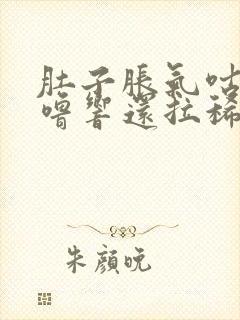 肚子脹氣咕
嚕響還拉稀
朱顏晚